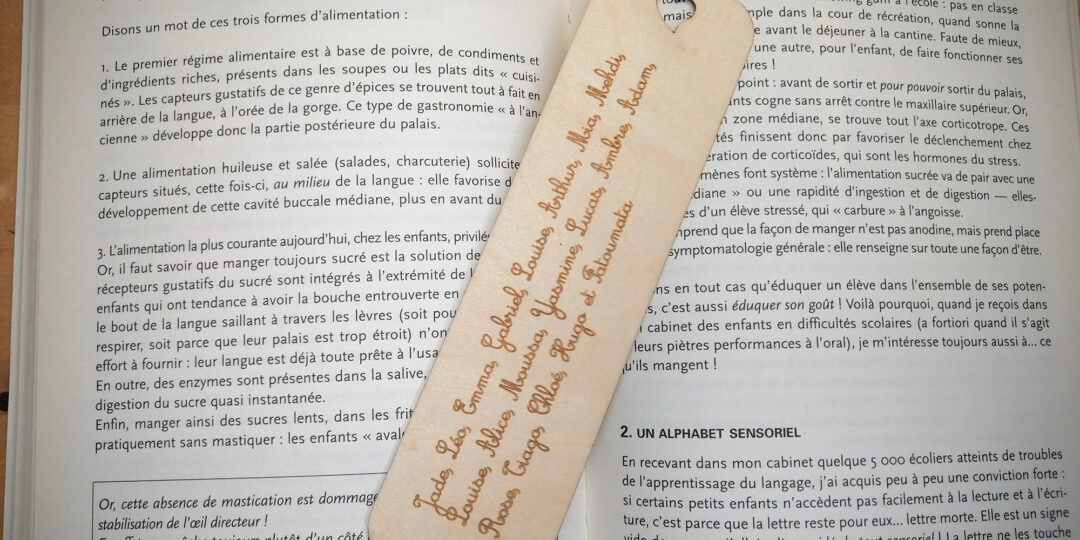 Disons un mot de ces trois formes d'alimentation :
1. Le premier régime alimentaire est à base de poivre, de condiments et
d'ingrédients riches, présents dans les soupes ou les plats dits « cuisi-
nés ». Les capteurs gustatifs de ce genre d'épices se trouvent tout à fait en
arrière de la langue, à l'orée de la gorge. Ce type de gastronomie « à l'an-
cienne » développe donc la partie postérieure du palais.
2. Une alimentation huileuse et salée (salades, charcuterie) sollicite
capteurs situés, cette fois-ci, au milieu de la langue : elle favorise
développement de cette cavité buccale médiane, plus en avant du
3. L'alimentation la plus courante aujourd'hui, chez les enfants,
Or, il faut savoir que manger toujours sucré est la solution de
récepteurs gustatifs du sucré sont intégrés à l'extrémité de
enfants qui ont tendance à avoir la bouche entrouverte en
le bout de la langue saillant à travers les lèvres (soit
respirer, soit parce que leur palais est trop étroit)
effort à fournir : leur langue est déjà toute prête à
En outre, des enzymes sont présentes dans la salive,
digestion du sucre quasi instantanée.
Enfin, manger ainsi des sucres lents, dans les
pratiquement sans mastiquer : les enfants
Or, cette absence de mastication est dommage
stabilisation de l'œil directeur !
Jade, Léo, Emma, Gabriel, Louise, Arthur, Mia, Mehdi,
Louise, Alice, Moussa, Yasmine, Lucas, Ambre, Adam,
Rose, Tiago, Chloé, Hugo et Fatoumata
à l'école : pas en classe
mais dans la cour de récréation, quand sonne la
avant le déjeuner à la cantine. Faute de mieux,
une autre, pour l'enfant, de faire fonctionner ses
point : avant de sortir et pour pouvoir sortir du palais,
cogne sans arrêt contre le maxillaire supérieur. Or,
zone médiane, se trouve tout l'axe corticotrope. Ces
finissent donc par favoriser le déclenchement chez
de corticoïdes, qui sont les hormones du stress.
font système : l'alimentation sucrée va de pair avec une
» ou une rapidité d'ingestion et de digestion — elles-
d'un élève stressé, qui « carbure » à l'angoisse.
que la façon de manger n'est pas anodine, mais prend place
symptomatologie générale : elle renseigne sur toute une façon d'être.
en tout cas qu'éduquer un élève dans l'ensemble de ses poten-
c'est aussi éduquer son goût ! Voilà pourquoi, quand je reçois dans
cabinet des enfants en difficultés scolaires (a fortiori quand il s'agit
leurs piètres performances à l'oral), je m'intéresse toujours aussi à... ce
qu'ils mangent !
2. UN ALPHABET SENSORIEL
En recevant dans mon cabinet quelque 5 000 écoliers atteints de troubles
de l'apprentissage du langage, j'ai acquis peu à peu une conviction forte :
si certains petits enfants n'accèdent pas facilement à la lecture et à l'écri-
ture, c'est parce que la lettre reste pour eux... lettre morte. Elle est un signe
sensoriel ! La lettre ne les touche